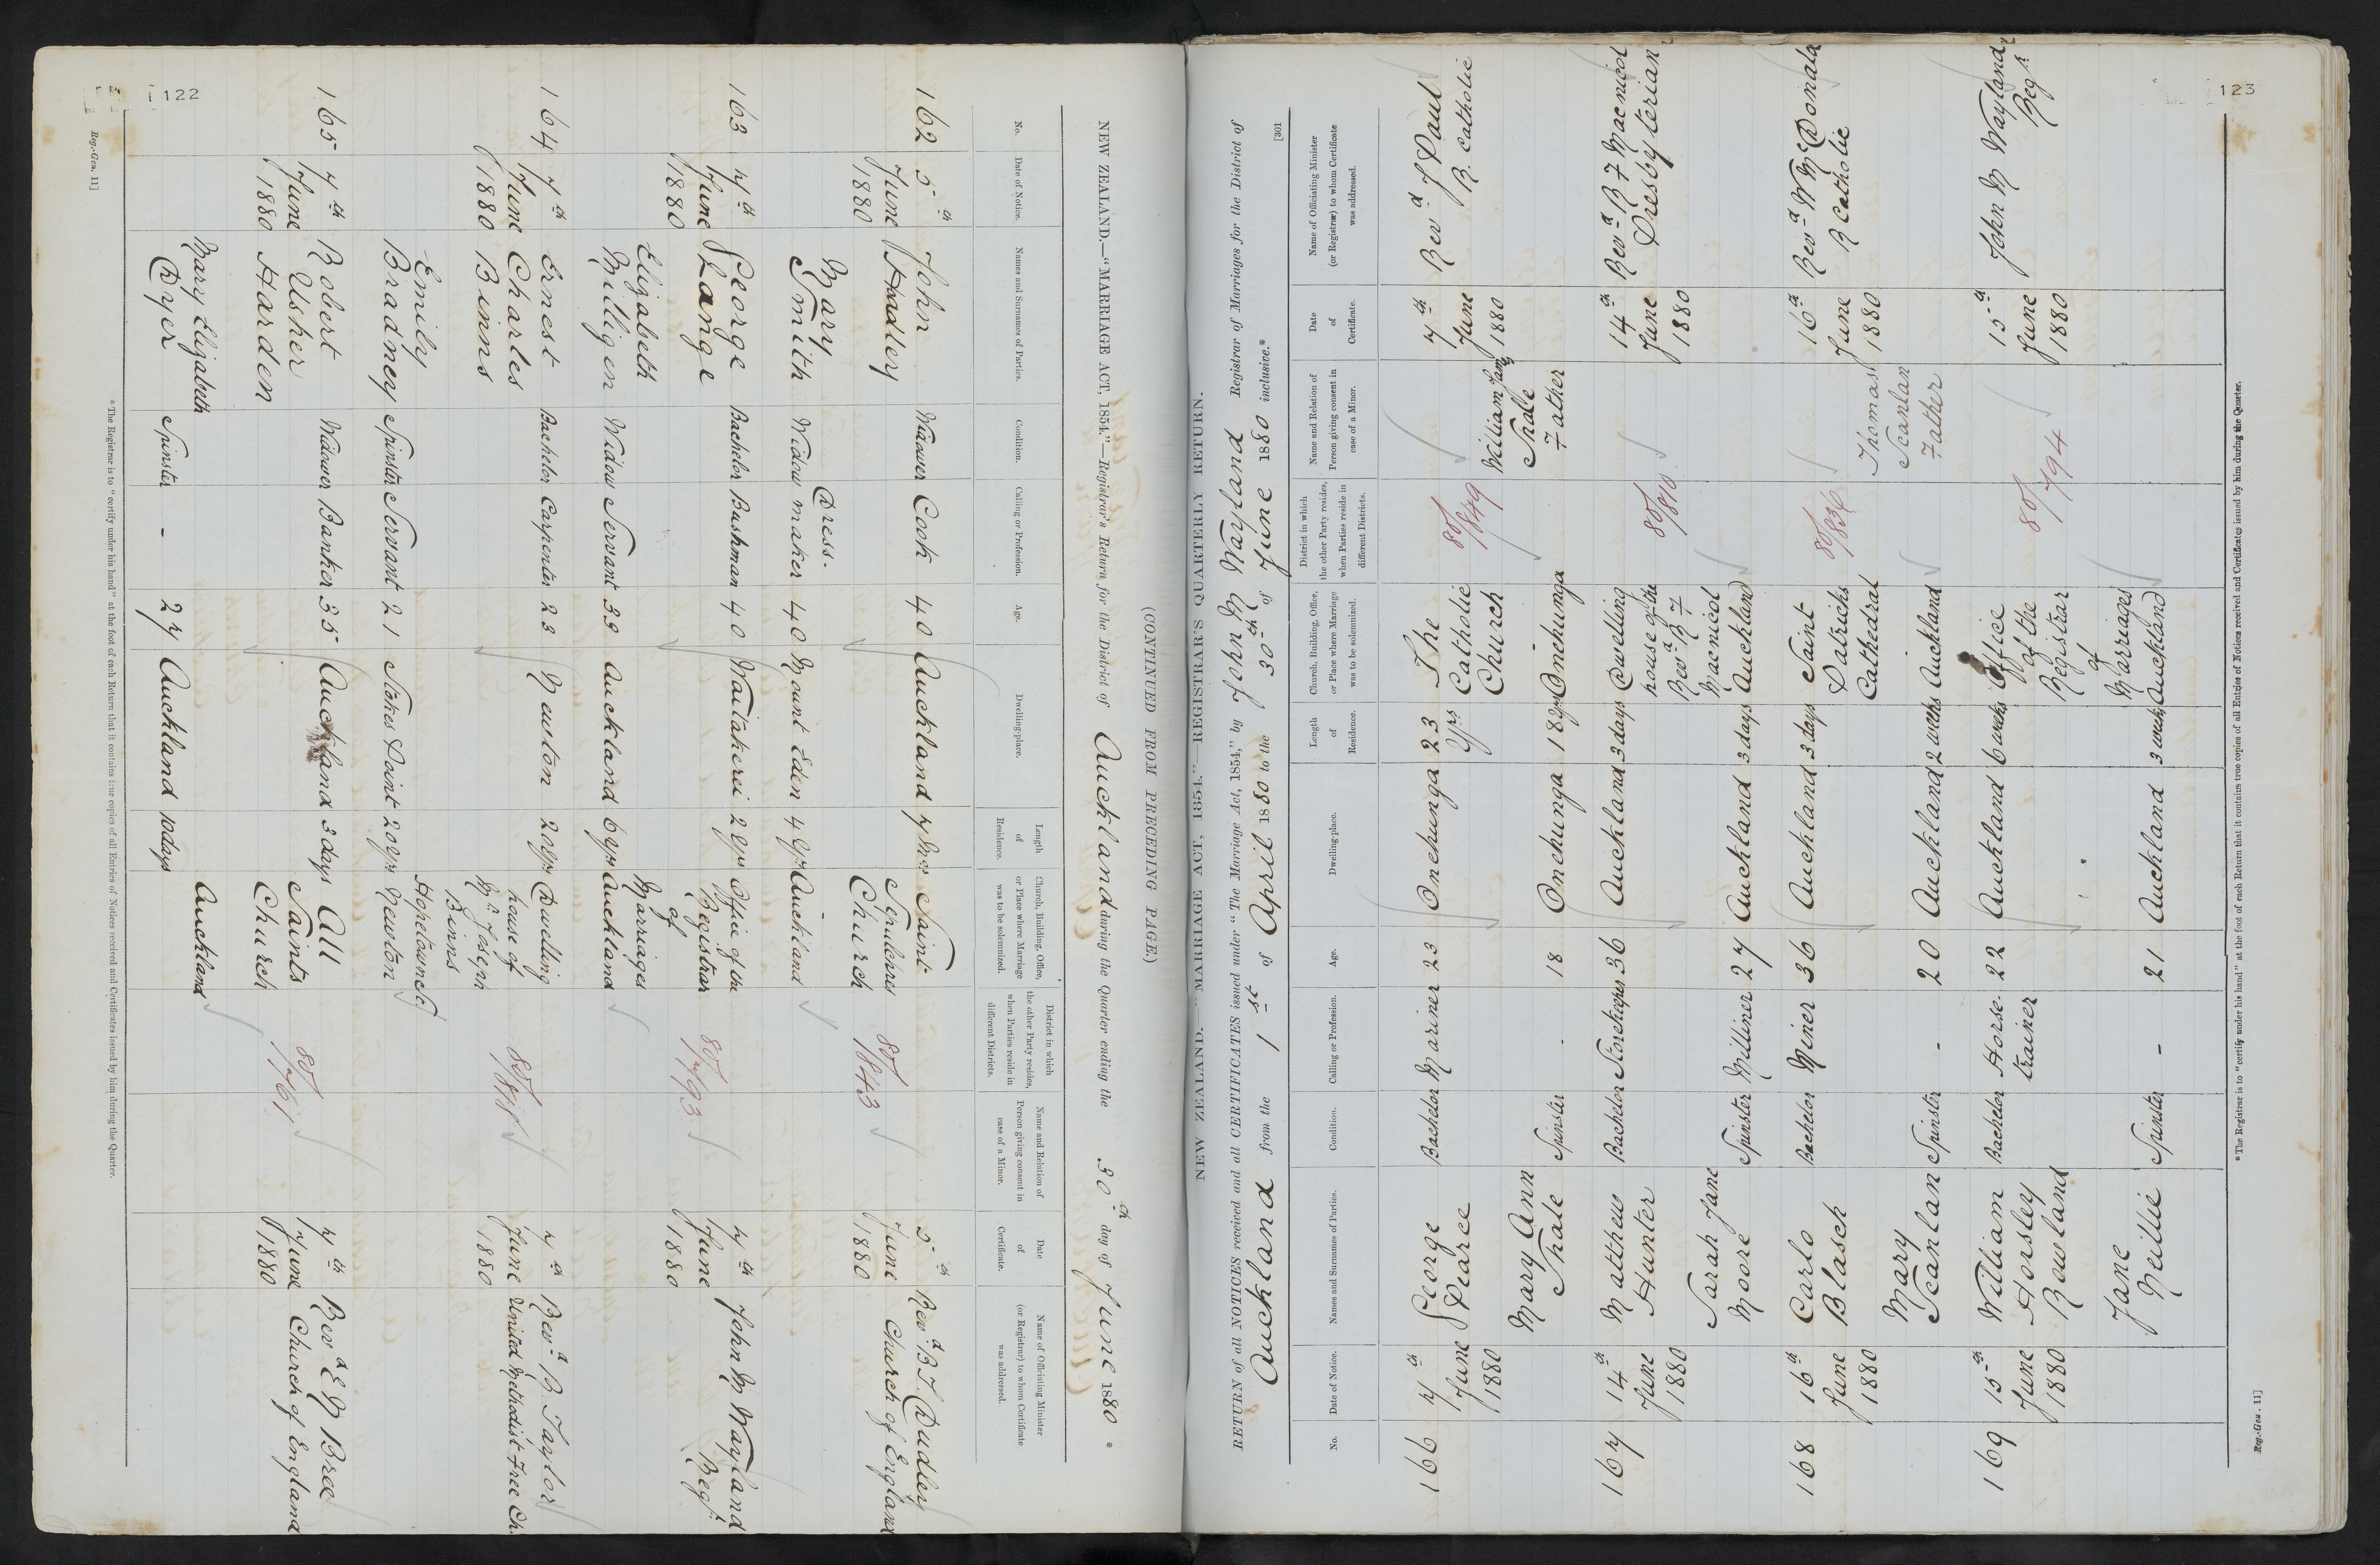 122
(CONTINUED FROM PRECEDING PAGE.)
NEW ZEALAND.—"MARRIAGE ACT, 1854."—Registrar's Return for the District of Auckland during the Quarter ending the 30th day of June 1880 *
No. Date of Notice. Names and Surnames of Parties. Condition. Calling or Profession. Age. Dwelling-place. Length of Residence. Church, Building, Office, or Place where Marriage was to be solemnized. District in which the other Party resides, when Parties reside in different Districts. Name and Relation of Person giving consent in case of a Minor. Date of Certificate. Name of Officiating Minister (or Registrar) to whom Certificate was addressed.
162 5th June 1880 John Hadley Widower Cook 40 Auckland 7 mos Saint Sepulchres Church 80/1843 5th June 1880 Revd B. T. Dudley Church of England
Mary Smith Widow Dress-maker 40 Mount Eden 4 yrs Auckland
163 7th June 1880 George Lange Bachelor Bushman 40 Waitakerei 2 yrs Office of the Registrar of Marriages 80/793 7th June 1880 John M Wayland Regr.
Elizabeth Milligen Widow Servant 33 Auckland 6 yrs Auckland
164 7th June 1880 Ernest Charles Binns Bachelor Carpenter 23 Newton 20 yrs Dwelling house of Mr Joseph Binns 80/818 7th June 1880 Revd B. Taylor United Methodist Free Ch.
Emily Bradney Spinster Servant 21 Stokes Point 20 yrs Hopetown St Newton
165 7th June 1880 Robert Usher Harden Widower Banker 35 Auckland 3 days All Saints Church 80/1761 7th June 1880 Revd E M Bree Church of England
Mary Elizabeth Dyer Spinster - 27 Auckland 10 days Auckland
* The Registrar is to "certify under his hand" at the foot of each Return that it contains true copies of all Entries of Notices received and Certificates issued by him during the Quarter.
Reg.-Gen. 11]
123
[301
NEW ZEALAND.—"MARRIAGE ACT, 1854."—REGISTRAR'S QUARTERLY RETURN.
RETURN of all NOTICES received and all CERTIFICATES issued under "The Marriage Act, 1854," by John M Wayland Registrar of Marriages for the District of
Auckland from the 1st of April 1880 to the 30th of June 1880 inclusive.*
No. Date of Notice. Names and Surnames of Parties. Condition. Calling or Profession. Age. Dwelling-place. Length of Residence. Church, Building, Office, or Place where Marriage was to be solemnized. District in which the other Party resides, when Parties reside in different Districts. Name and Relation of Person giving consent in case of a Minor. Date of Certificate. Name of Officiating Minister (or Registrar) to whom Certificate was addressed.
166 7th June 1880 George Pearce Bachelor Mariner 23 Onehunga 23 yrs The Catholic Church 80/849 7th June 1880 Revd J Paul R. Catholic
Mary Ann Thale Spinster - 18 Onehunga 18 yrs Onehunga William James Thale Father
167 14th June 1880 Matthew Hunter Bachelor Storekeeper 36 Auckland 3 days Dwelling house of the Revd R F Macnicol 80/810 14th June 1880 Revd R F Macnicol Presbyterian
Sarah Jane Moore Spinster Milliner 27 Auckland 3 days Auckland
168 16th June 1880 Carlo Blasch Bachelor Miner 36 Auckland 3 days Saint Patricks Cathedral 80/836 16th June 1880 Revd W McDonald R Catholic
Mary Scanlan Spinster - 20 Auckland 2 weeks Auckland Thomas Scanlan Father
169 15th June 1880 William Horsley Rowland Bachelor Horse-trainer 22 Auckland 6 weeks Office of the Registrar of Marriages 80/794 15th June 1880 John M Wayland Regr
Jane Neillie Spinster - 21 Auckland 3 weeks Auckland
* The Registrar is to "certify under his hand" at the foot of each Return that it contains true copies of all Entries of Notices received and Certificates issued by him during the Quarter.
Reg.-Gen. 11]